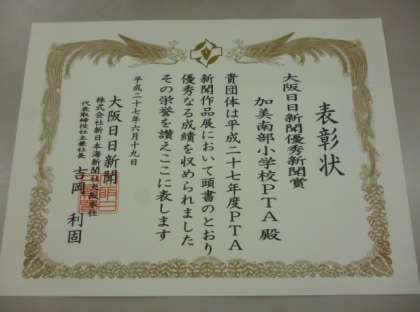 表彰状
大阪日日新聞優秀新聞賞
加美南部小学校PTA 殿
貴団体は平成二十七年度PTA
新聞作品展において頭書のとおり
優秀なる成績を収められました
その栄誉を讃えここに表します
平成二十七年六月十九日
大阪日日新聞
株式会社新日本海新聞社大阪本社
代表取締役社主兼社長
吉岡 利固